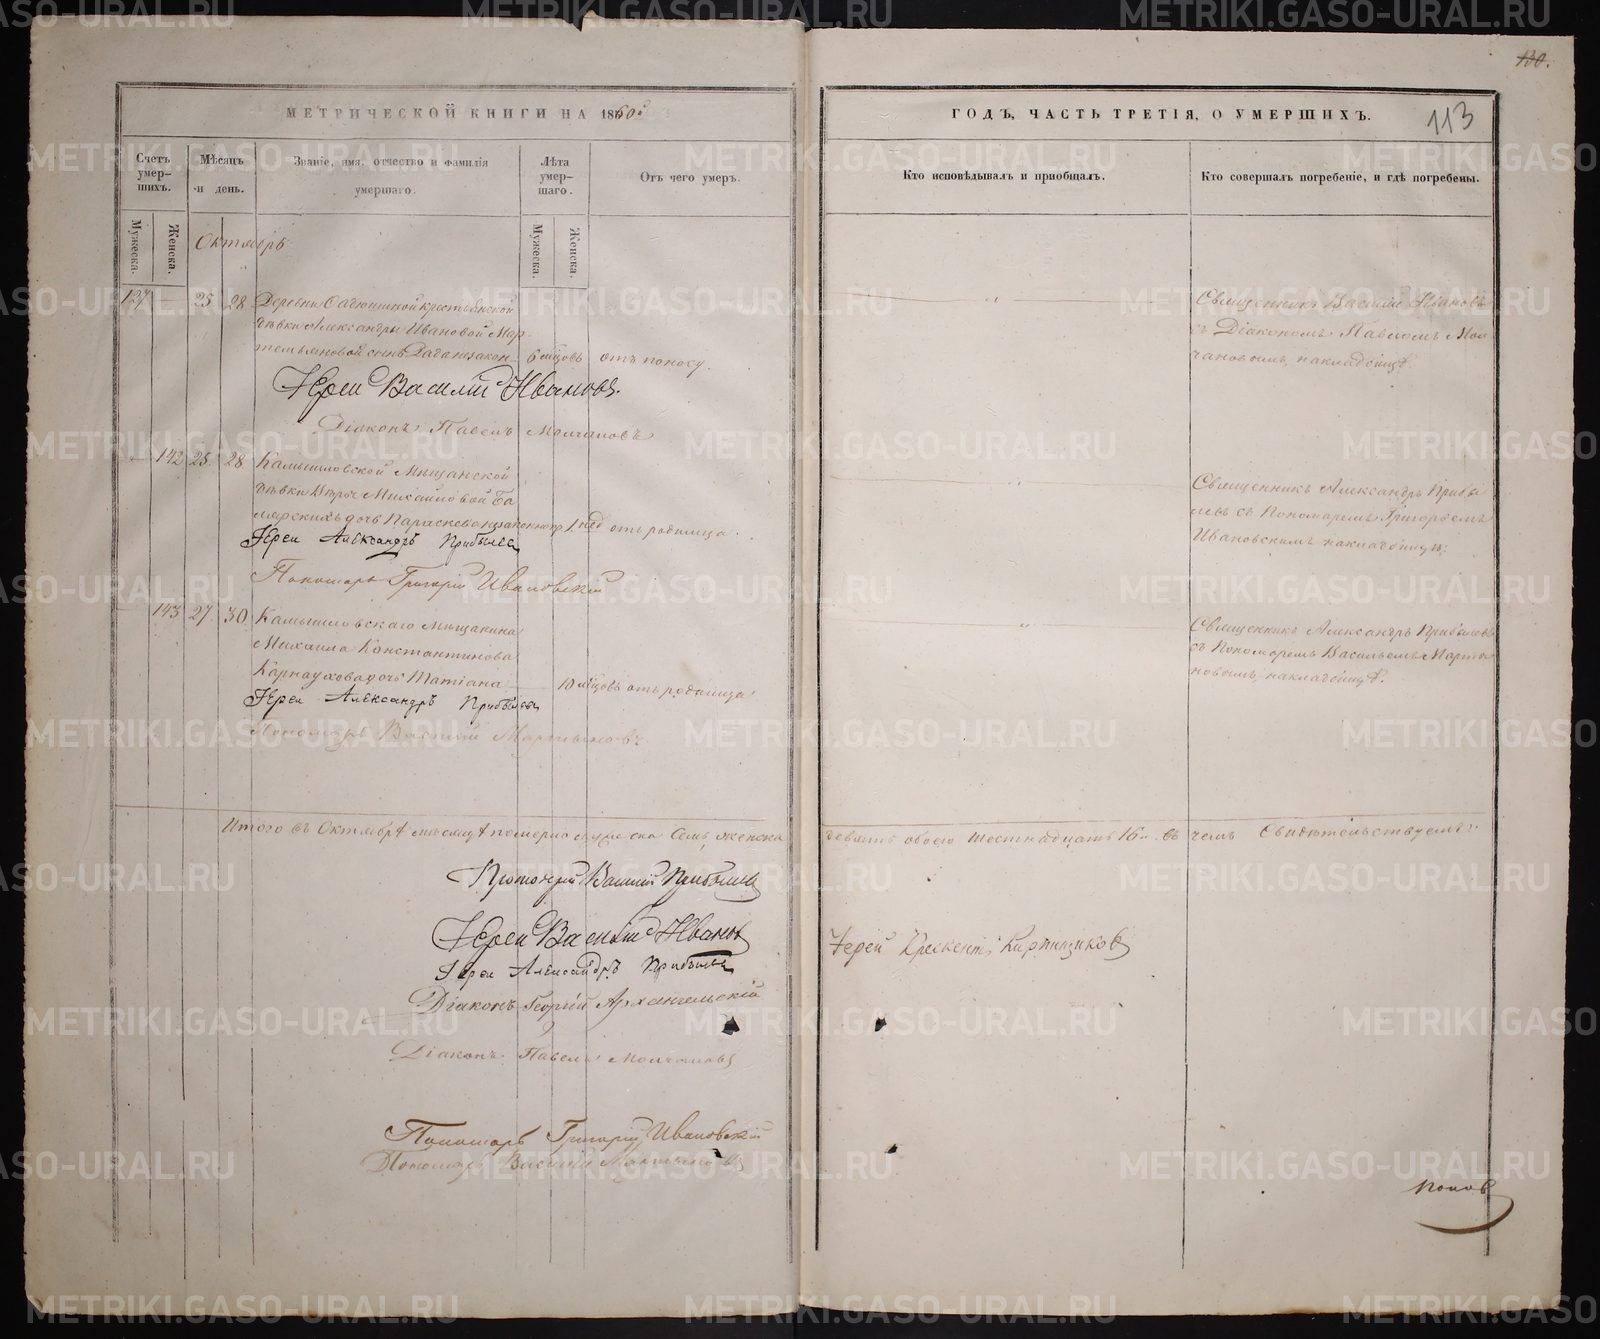 130.
113
МЕТРИЧЕСКОЙ КНИГИ НА 1860й
ГОДЪ, ЧАСТЬ ТРЕТІЯ, О УМЕРШИХЪ.
Счетъ умер-
шихъ.
Мѣсяцъ
и день.
Званіе, имя, отчество и фамилія
умершаго.
Лѣта
умер-
шаго.
Отъ чего умеръ.
Кто исповѣдывалъ и пріобщалъ.
Кто совершалъ погребеніе, и гдѣ погребены.
Мужеска.
Женска.
Мужеска.
Женска.
Октябрь
137 25 28 Деревни крестьянской
дѣвки Александры Ивановой Мар-
темьяновой сынъ 6 мцовъ отъ поносу.
Священникъ Василій Ивановъ
съ Діакономъ Павломъ Мол
чановымъ, на кладбищѣ.
Іерей Василій Ивановъ.
Діаконъ Павелъ Молчановъ
142 25 28 Камышловской Мѣщанской
дѣвки Михайловой
дочь Параскева незаконнор 1 нед отъ родимца.
Священникъ Александръ Прибы
левъ съ Пономаремъ Григорьемъ
Ивановскимъ на кладбищѣ.
Іерей Александръ Прибылевъ
Пономарь Григорій Ивановскій
143 27 30 Камышловскаго Мѣщанина
Михаила Константинова
Карнаухова дочь Татіана 10 мцовъ отъ родимца
Священникъ Александръ Прибылевъ
съ Пономаремъ Васильемъ Марты
новымъ, на кладбищѣ.
Іерей Александръ Прибылевъ
Пономарь Василій Мартыновъ
Итого въ Октябрѣ мѣсяцѣ померло мужеска Семь, женска
девять обоего шестнадцать 16. въ чемъ Свидѣтельствуемъ:
Протоіерей Василій Прибылевъ
Іерей Василій Ивановъ
Іерей Крискентъ Кирпищиковъ
Іерей Александръ Прибылевъ
Діаконъ Георгій Архангельскій
Діаконъ Павелъ Молчановъ
Пономарь Григорій Ивановскій
Пономарь Василій Мартыновъ
Поповъ
METRIKI.GASO-URAL.RU